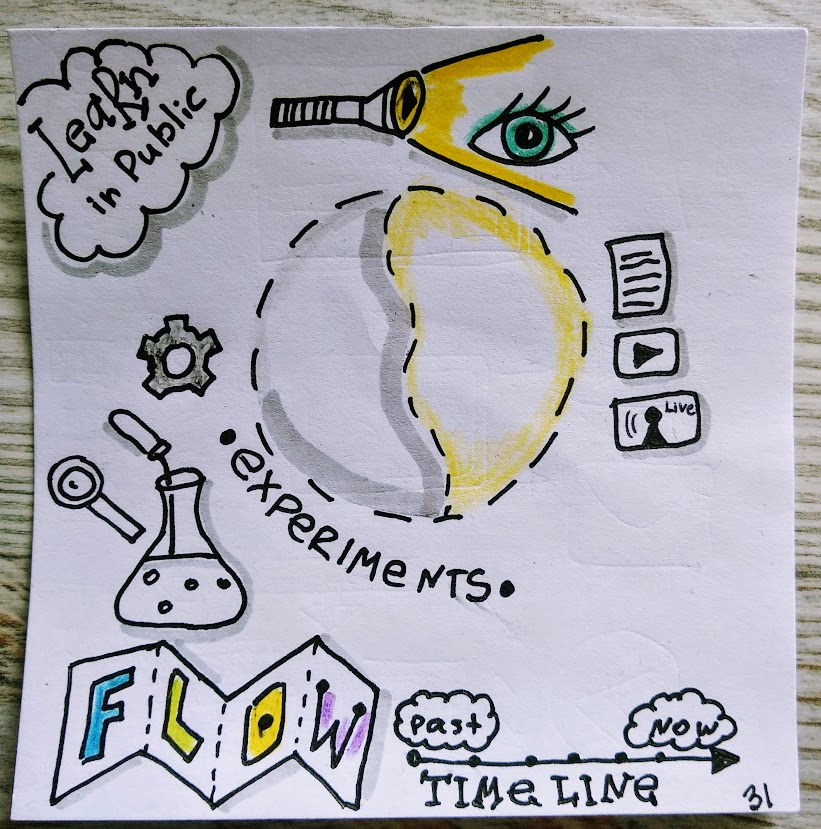 Learn
in Public
Live
•experiments•
FLOW
Past
Now
TIMELINE
31